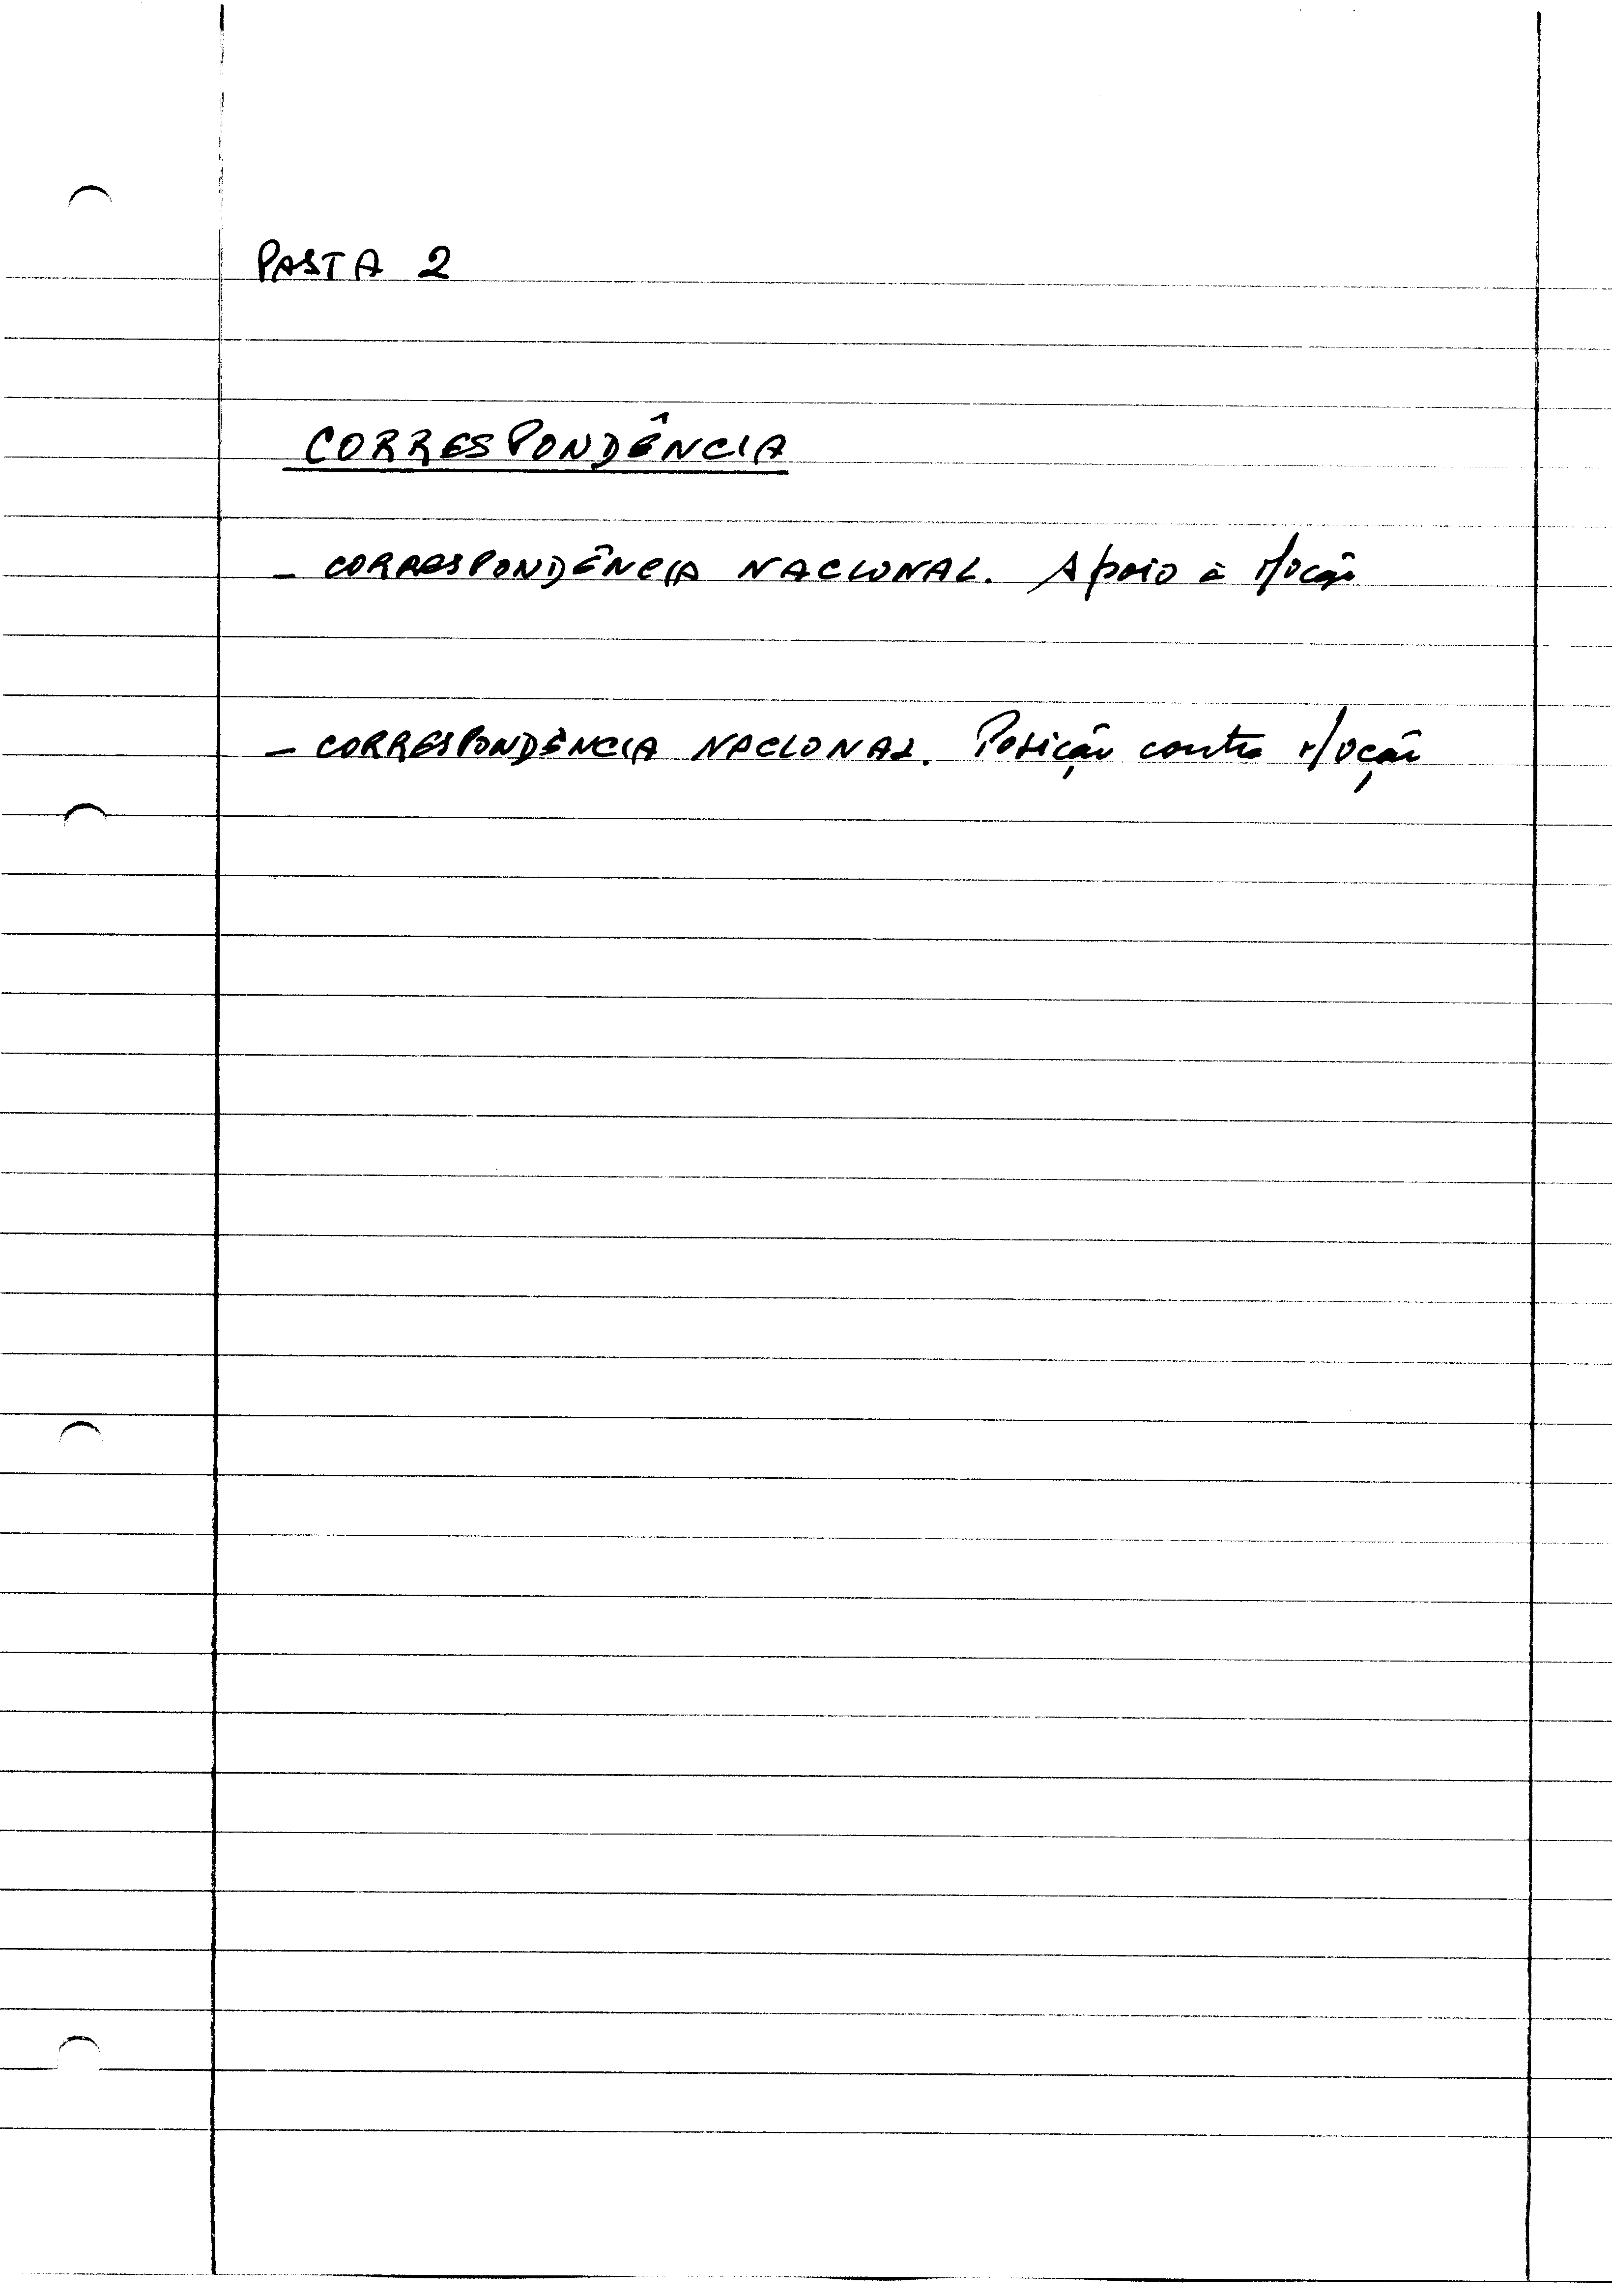 PASTA 2
CORRESPONDÊNCIA
- CORRESPONDÊNCIA NACIONAL. Apoio à Moção
- CORRESPONDÊNCIA NACIONAL. Posição contra Moção